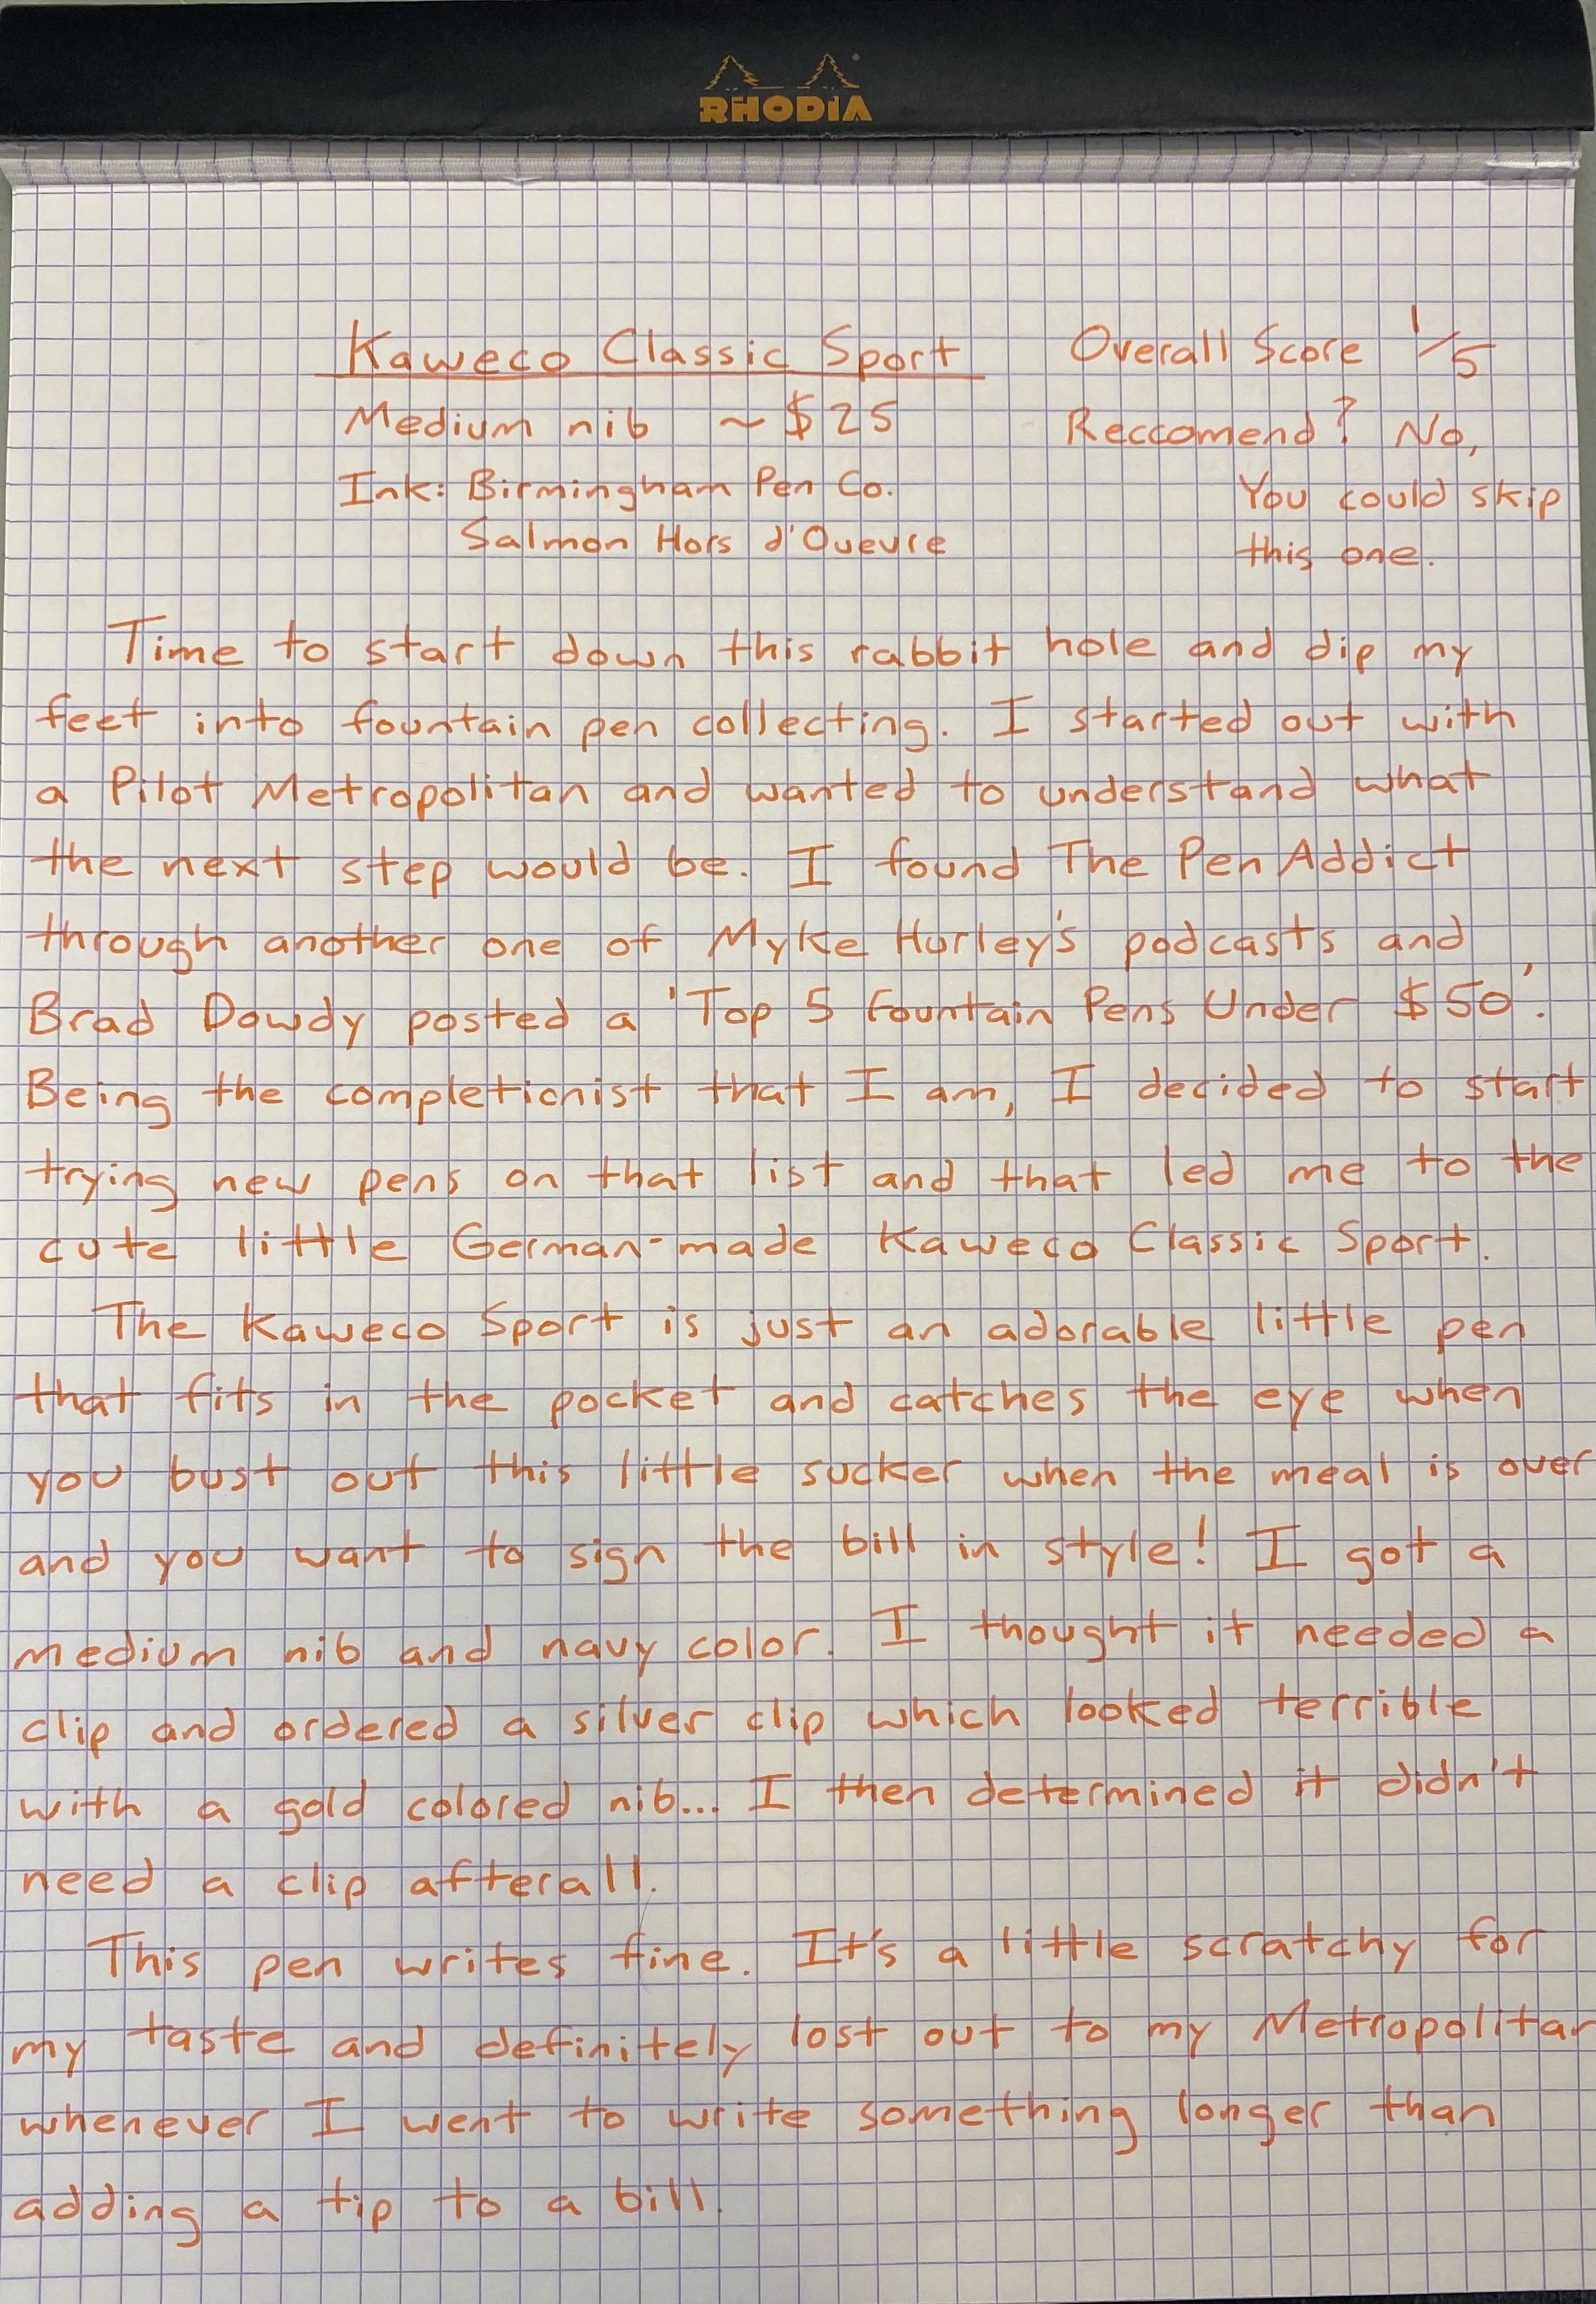 RHODIA
Kaweco Classic Sport
Medium nib ~ $25
Ink: Birmingham Pen Co.
Salmon Hors d'Ouevre
Overall Score 1/5
Reccomend? No,
You could skip
this one.
Time to start down this rabbit hole and dip my
feet into fountain pen collecting. I started out with
a Pilot Metropolitan and wanted to understand what
the next step would be. I found The Pen Addict
through another one of Myke Hurley's podcasts and
Brad Dowdy posted a 'Top 5 Fountain Pens Under $50'.
Being the completionist that I am, I decided to start
trying new pens on that list and that led me to the
cute little German-made Kaweco Classic Sport.
The Kaweco Sport is just an adorable little pen
that fits in the pocket and catches the eye when
you bust out this little sucker when the meal is over
and you want to sign the bill in style! I got a
medium nib and navy color. I thought it needed a
clip and ordered a silver clip which looked terrible
with a gold colored nib... I then determined it didn't
need a clip afterall.
This pen writes fine. It's a little scratchy for
my taste and definitely lost out to my Metropolitan
whenever I went to write something longer than
adding a tip to a bill.